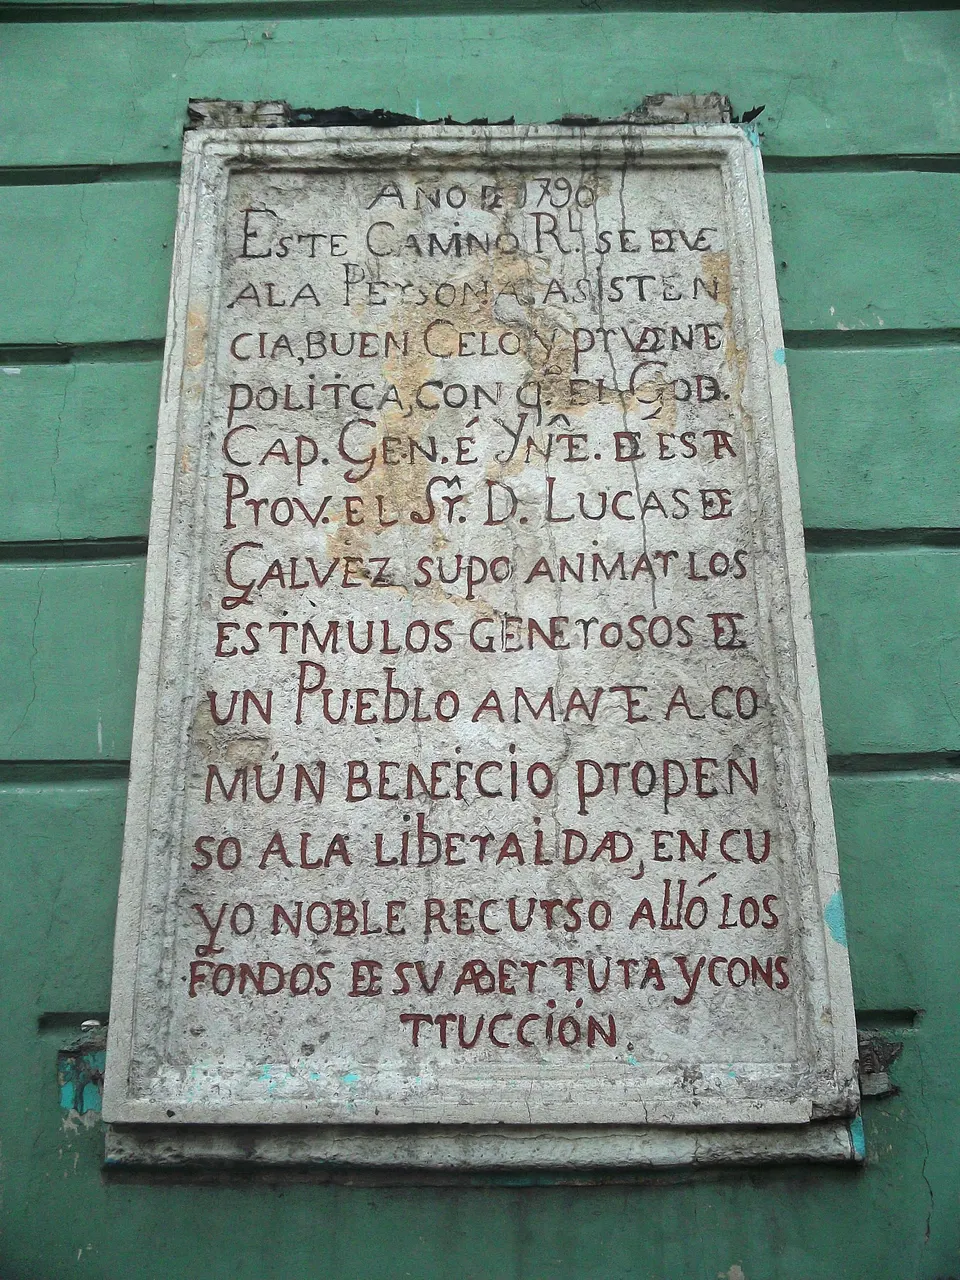 AÑO DE 1790
ESTE CAMINO RL. SE DEVE
ALA PERSONA, ASISTEN
CIA, BUEN CELO Y PRUDENTE
POLITCA, CON Q. EL GOD.
CAP. GEN. É YNTE. DE ESTA
PROV. EL Sr. D. LUCAS DE
GALVEZ SUPO ANIMAR LOS
ESTIMULOS GENEROSOS DE
UN PUEBLO AMANTE A CO
MÚN BENEFICIO PROPEN
SO ALA LIBERALIDAD, EN CU
YO NOBLE RECURSO ALLÓ LOS
FONDOS DE SU ABERTURA Y CONS
TRUCCIÓN.